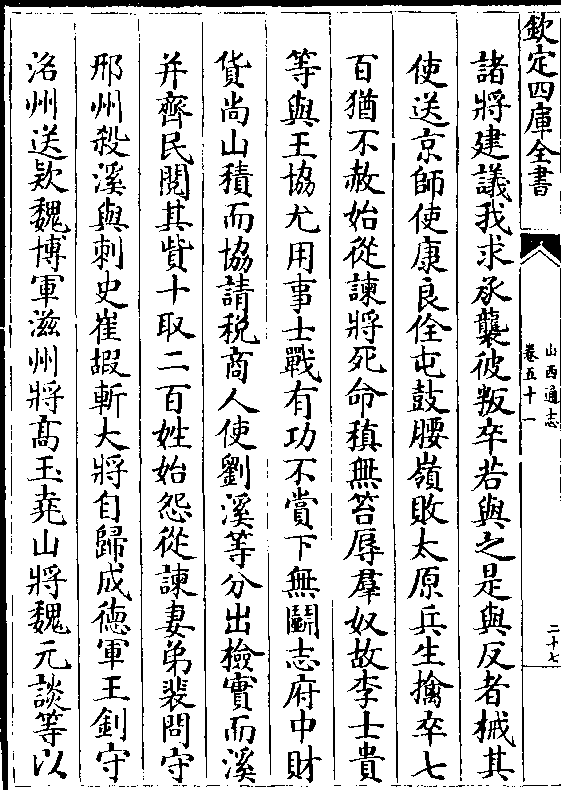 欽定四庫全書
山西通志
卷五十一
二十七
諸將建議我求承襲彼叛卒若與之是與反者械其
使送京師使康良佺屯鼓腰嶺敗太原兵生擒卒七
百猶不赦始從諫將死命稹無笞辱羣奴故李士貴
等與王協尤用事士戰有功不賞下無鬭志府中財
貨尚山積而協請税商人使劉溪等分出檢實而溪
并齊民閱其貲十取二百姓始怨從諫妻弟裴問守
邢州殺溪與刺史崔嘏斬大將自歸成德軍王釗守
洺州送欵魏博軍滋州將高玉堯山將魏元談等以